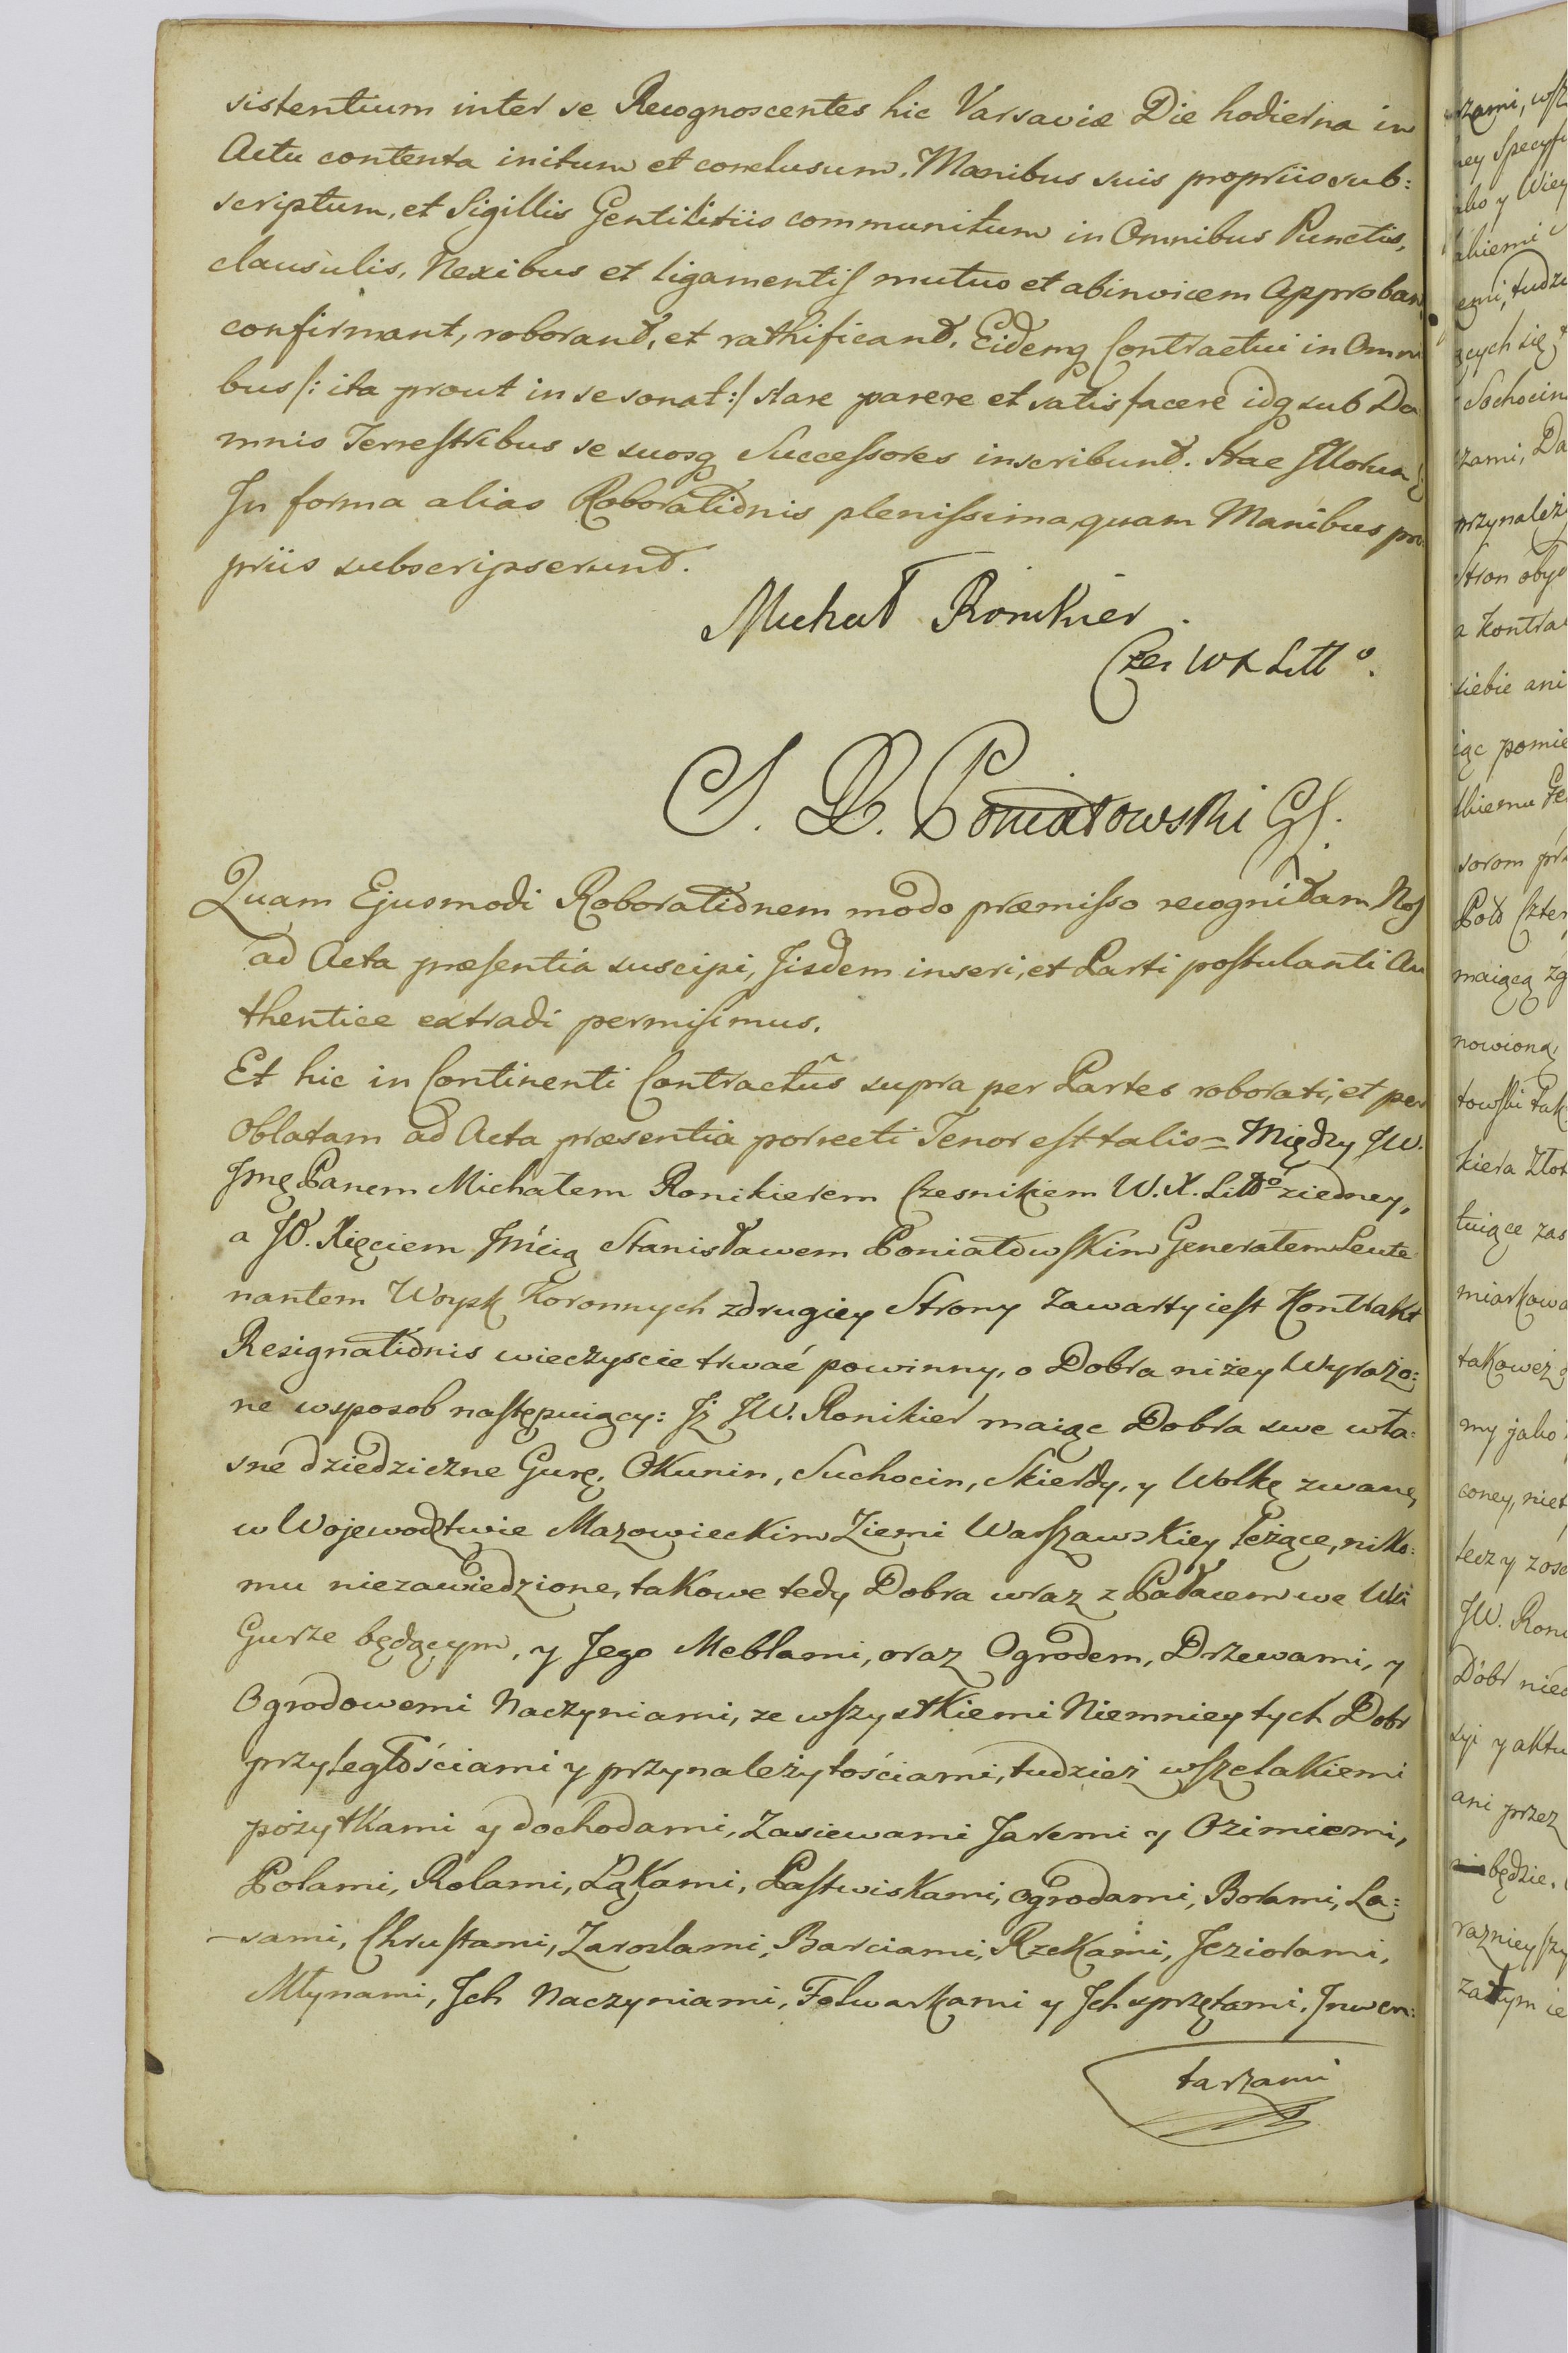 sistentium inter se Recognoscentes hic Varsaviæ Die hodierna in
Actu contenta initum et conclusum, Manibus suis propriis sub:
scriptum, et Sigillis Gentilitiis communitum in Omnibus Punctis,
clausulis, Nexibus et ligamentis mutuo et abinvicem Approban
confirmant, roborant, et rathificant, Eidemq Contractui in Omni
bus /: ita prout in se sonat :/ stare parere et satisfacere idq sub Da
mnis Terrestribus se suosq Successores inscribunt. Hac
In forma alias Roborationis plenissima, quam Manibus pro:
priis subscripserunt.
Michał Ronikier.
Cześ W X Litt°.
S. X. Poniatowski GL.
Quam Ejusmodi Roborationem modo præmisso recognitam Nos
ad Acta præsentia suscipi, Iisdem inseri, et Parti postulanti Au
thentice extradi permisimus.
Et hic in Continenti Contractus supra per Partes roborati, et per
Oblatam ad Acta præsentia porrecti Tenor est talis = Między JW.
Jmę Panem Michałem Ronikierem Cześnikiem W. X. Litt° ziedney,
a JO. Xięciem Jmcią Stanisławem Poniatowskim Generałem Leute
nantem Woysk Koronnych zdrugiey Strony zawarty iest Kontrakt
Resignationis wieczyscie trwać powinny, o Dobra niżey Wyrażo:
ne wsposob następuiący: Iż JW. Ronikier maiąc Dobra swe wła:
sne dziedziczne Gurę, Okunin, Suchocin, Skierdy, y Wolkę zwane,
w Wojewodztwie Mazowieckim Ziemi Warszawskiey leżące, niko:
mu niezawiedzione, takowe tedy Dobra wraz z Pałacem we Wsi
Gurze będącym, y Jego Meblami, oraz Ogrodem, Drzewami, y
Ogrodowemi Naczyniami, ze wszystkiemi Niemniey tych Dobr
przyległościami y przynależytościami, tudzież wszelakiemi
pożytkami y dochodami, Zasiewami Jaremi y Ozimiemi,
Polami, Rolami, Łąkami, Pastwiskami, Ogrodami, Borami, La:
sami, Chrustami, Zaroslami, Barciami, Rzekami, Jeziorami,
Młynami, Ich Naczyniami, Folwarkami y Ich sprzętami, Inwen:
tarzami